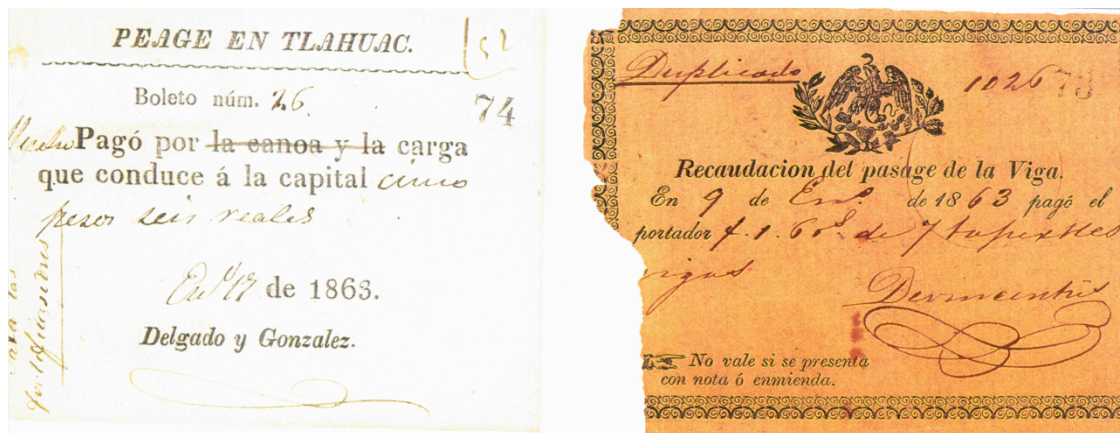 PEAGE EN TLAHUAC.
52
Boleto núm. 26.
74
Pagó por la canoa y la carga
que conduce á la capital cinco
pesos seis reales
Eno 17 de 1863.
Delgado y Gonzalez.
para las
fortificaciones
Duplicado
1026
73
Recaudacion del pasage de la Viga.
En 9 de Eno. de 1863 pagó el
portador de 7
vigas
No vale si se presenta
con nota ó enmienda.